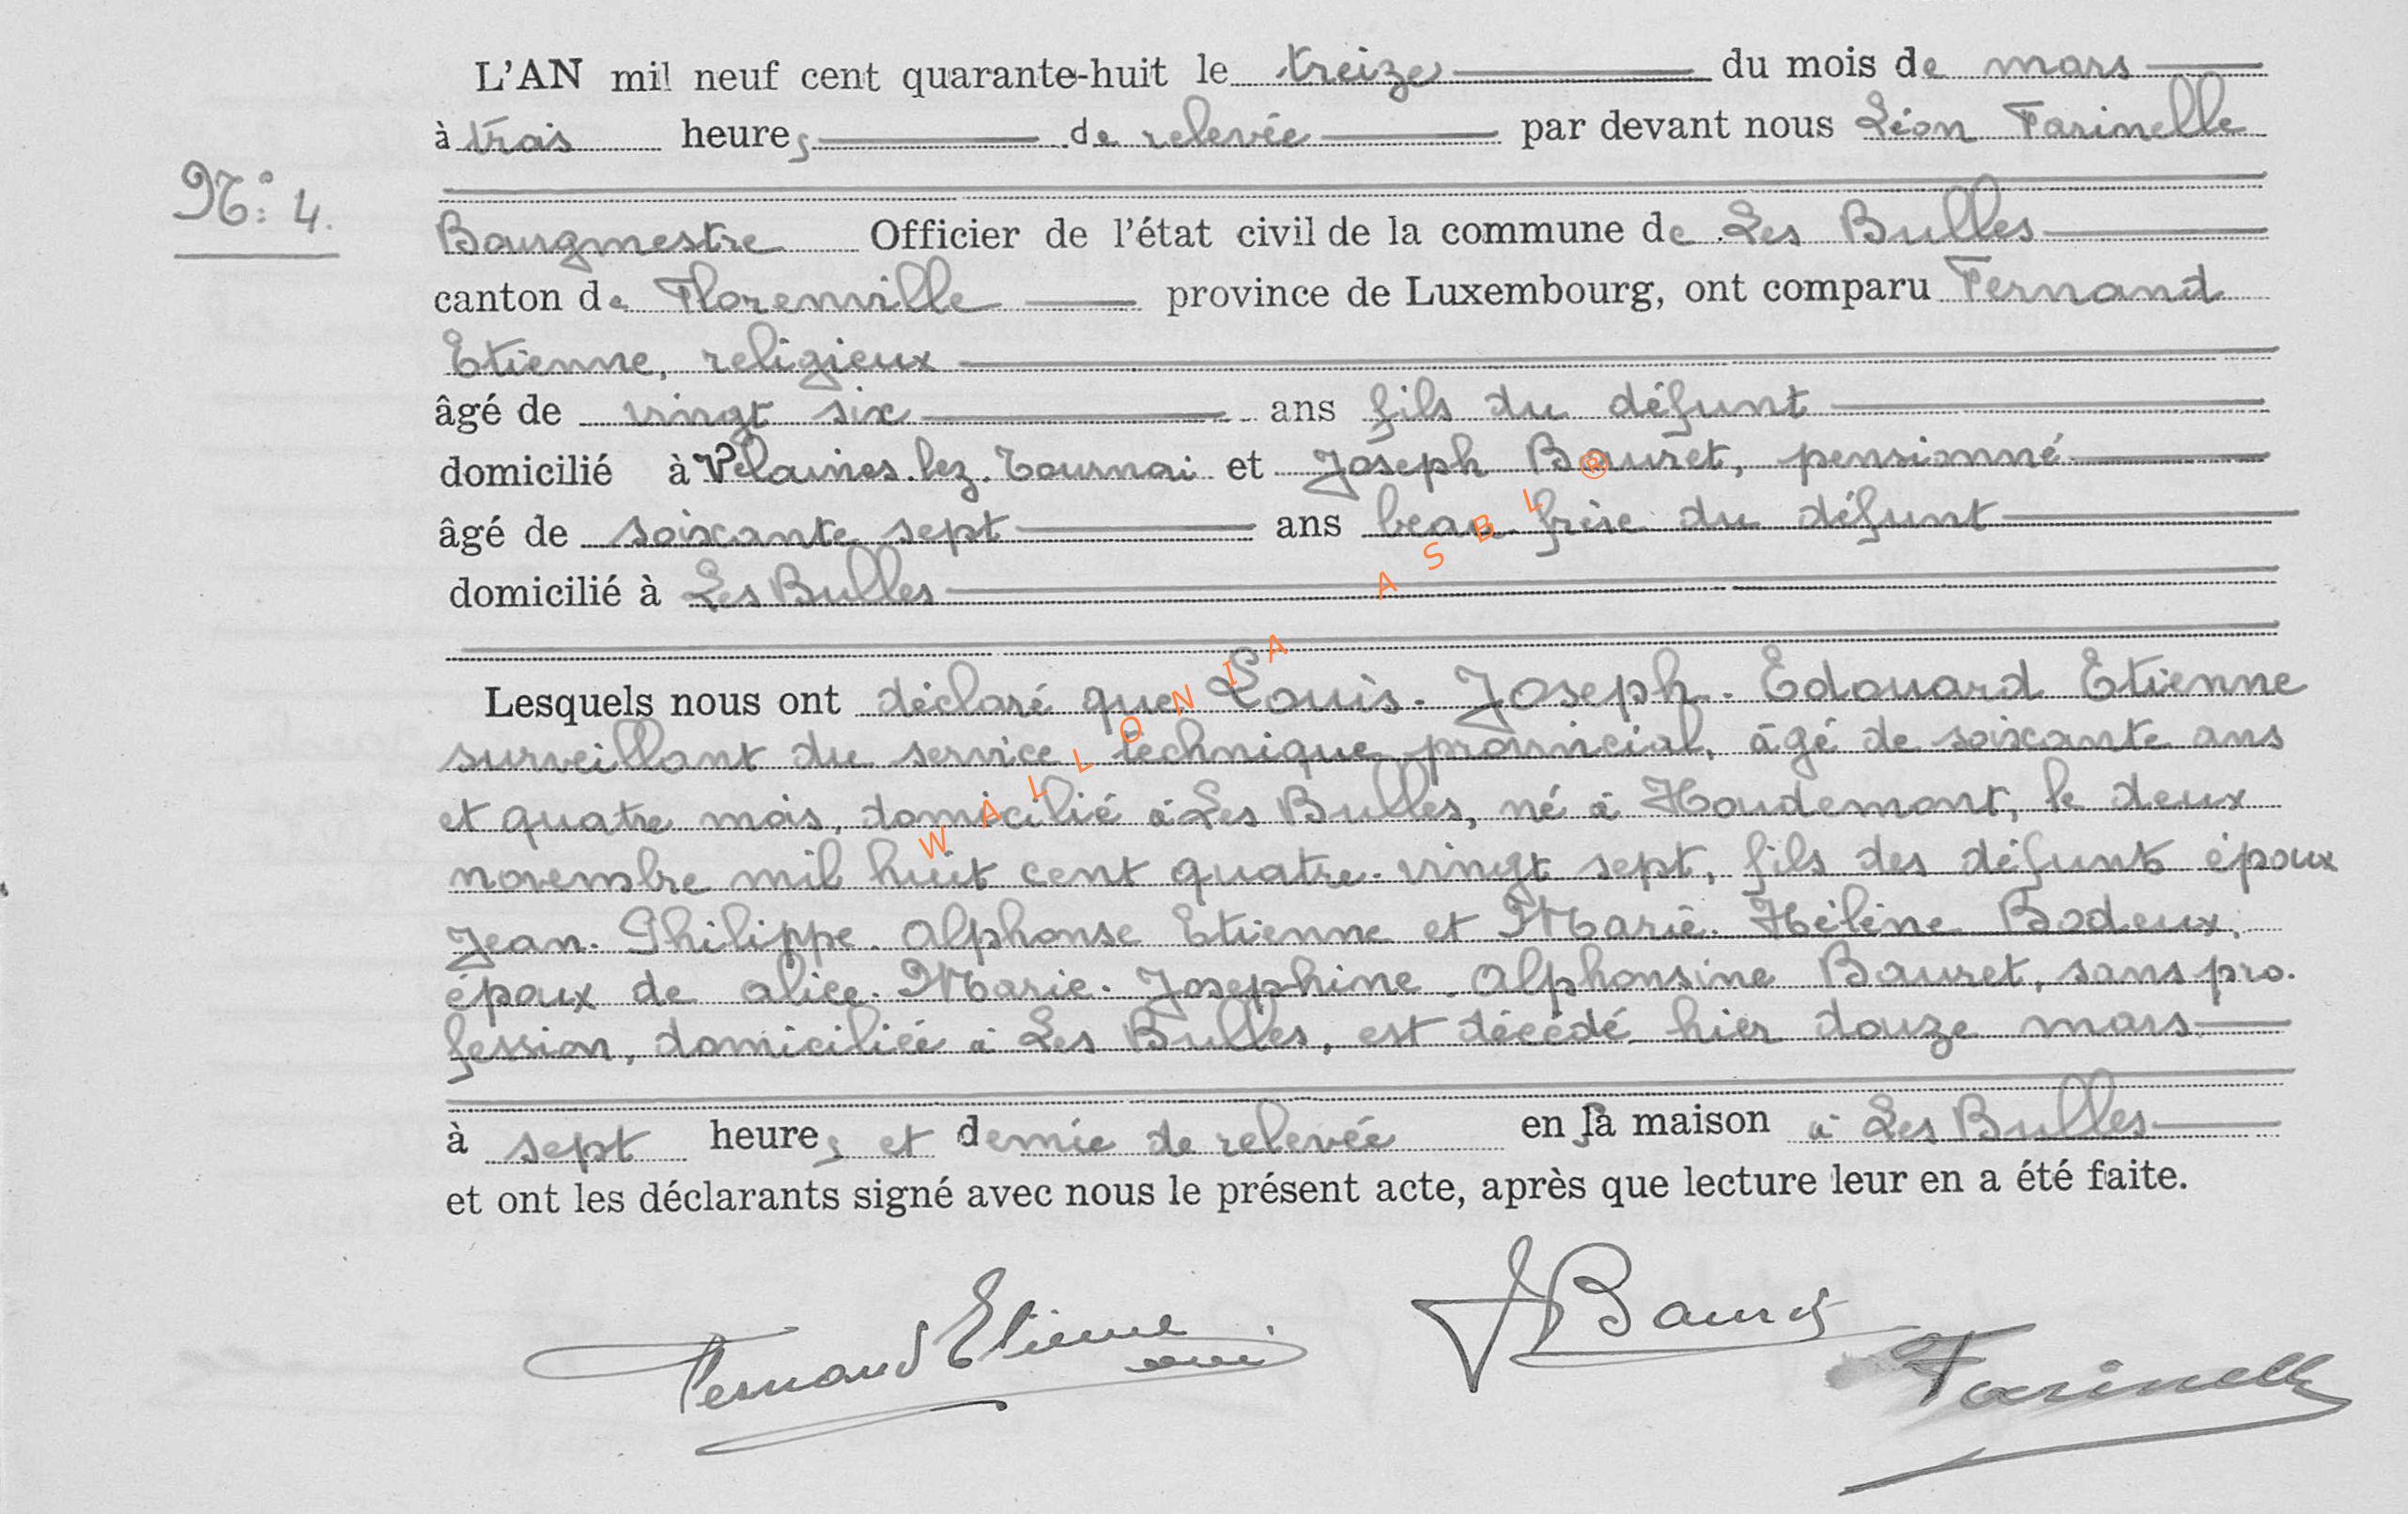 L'AN mil neuf cent quarante-huit le treize du mois de mars
à trois heures de relevée par devant nous Léon Farinelle
N° 4.
Bourgmestre Officier de l'état civil de la commune de Les Bulles
canton de Florenville province de Luxembourg, ont comparu Fernand
Etienne, religieux
âgé de vingt six ans fils du défunt
domicilié à Velaines-lez-Tournai et Joseph Bauret, pensionné
âgé de soixante sept ans beau-frère du défunt
domicilié à Les Bulles
Lesquels nous ont déclaré que Louis-Joseph-Edouard Etienne
surveillant du service technique provincial, âgé de soixante ans
et quatre mois, domicilié à Les Bulles, né à Houdemont, le deux
novembre mil huit cent quatre-vingt sept, fils des défunts époux
Jean-Philippe-Alphonse Etienne et Marie-Hélène Bodeux,
époux de Alice-Marie-Josephine-Alphonsine Bauret, sans pro-
fession, domiciliée à Les Bulles, est décédé hier douze mars
à sept heures et demie de relevée en sa maison à Les Bulles
et ont les déclarants signé avec nous le présent acte, après que lecture leur en a été faite.
Fernand Etienne JBauret
Farinelle
WALLONIA ASBL ®